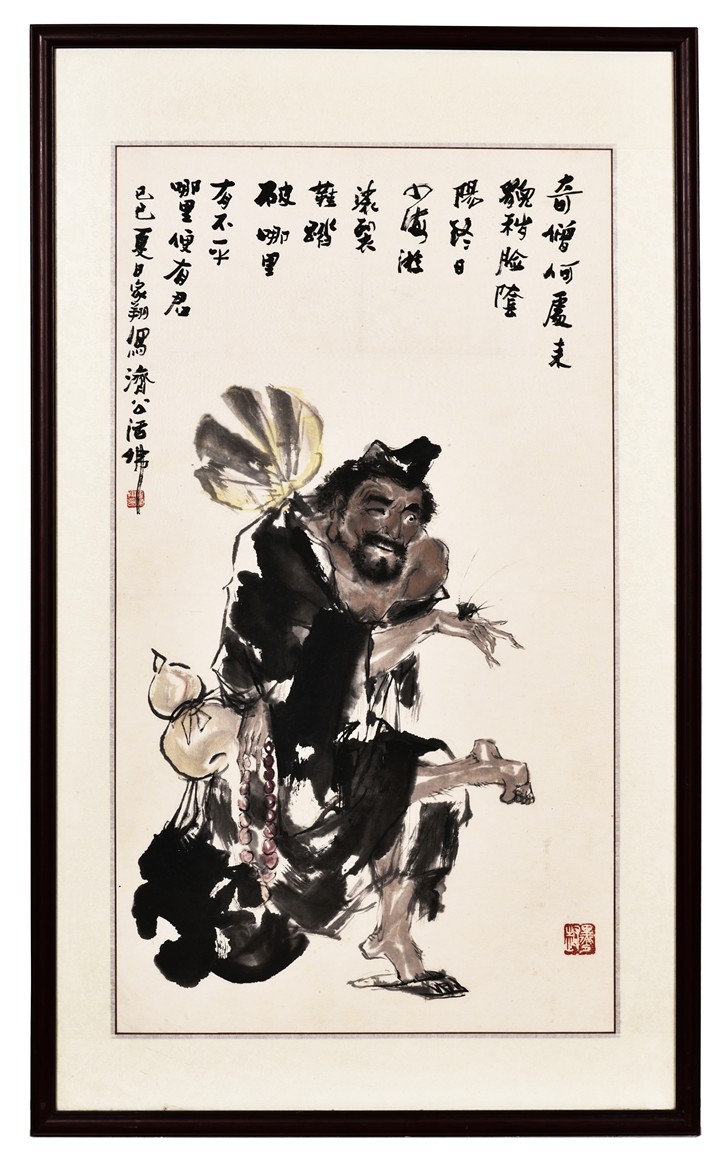 奇僧何處来
貌脸陰
陽終日
海游
裂
鞋踏
破哪里
有不平
哪里便有君
己巳夏日家翔寫濟公活佛